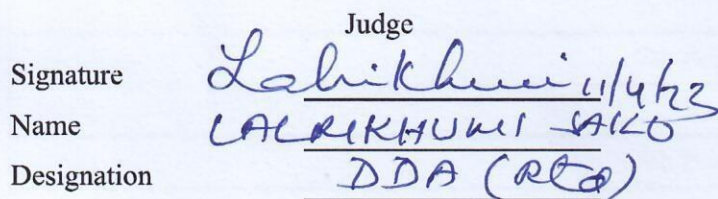 Judge
Signature Lalrikhumi 11/4/23
Name LALRIKHUMI SAILO
Designation DDA (Rtd)